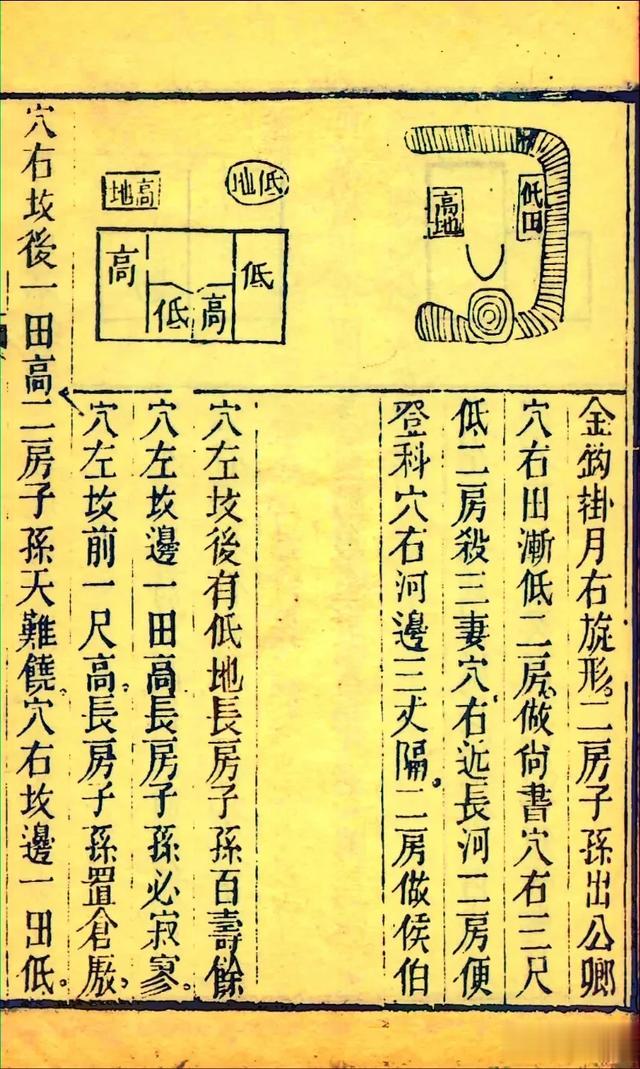 低田
高地
金鈎掛月右旋形。二房子孫出公卿
穴右田漸低二房。做尚書穴右三尺
低二房殺三妻穴右近長河二房便
登科穴右河邊三丈隔。二房做侯伯
低地
高地
低
高
低
高
穴左坟後有低地長房子孫百壽餘
穴左坟邊一田高長房子孫必寂寥。
穴左坟前一尺高。長房子孫置倉厫。
穴右坟後一田高二房子孫天難饒。穴右坟邊一田低。